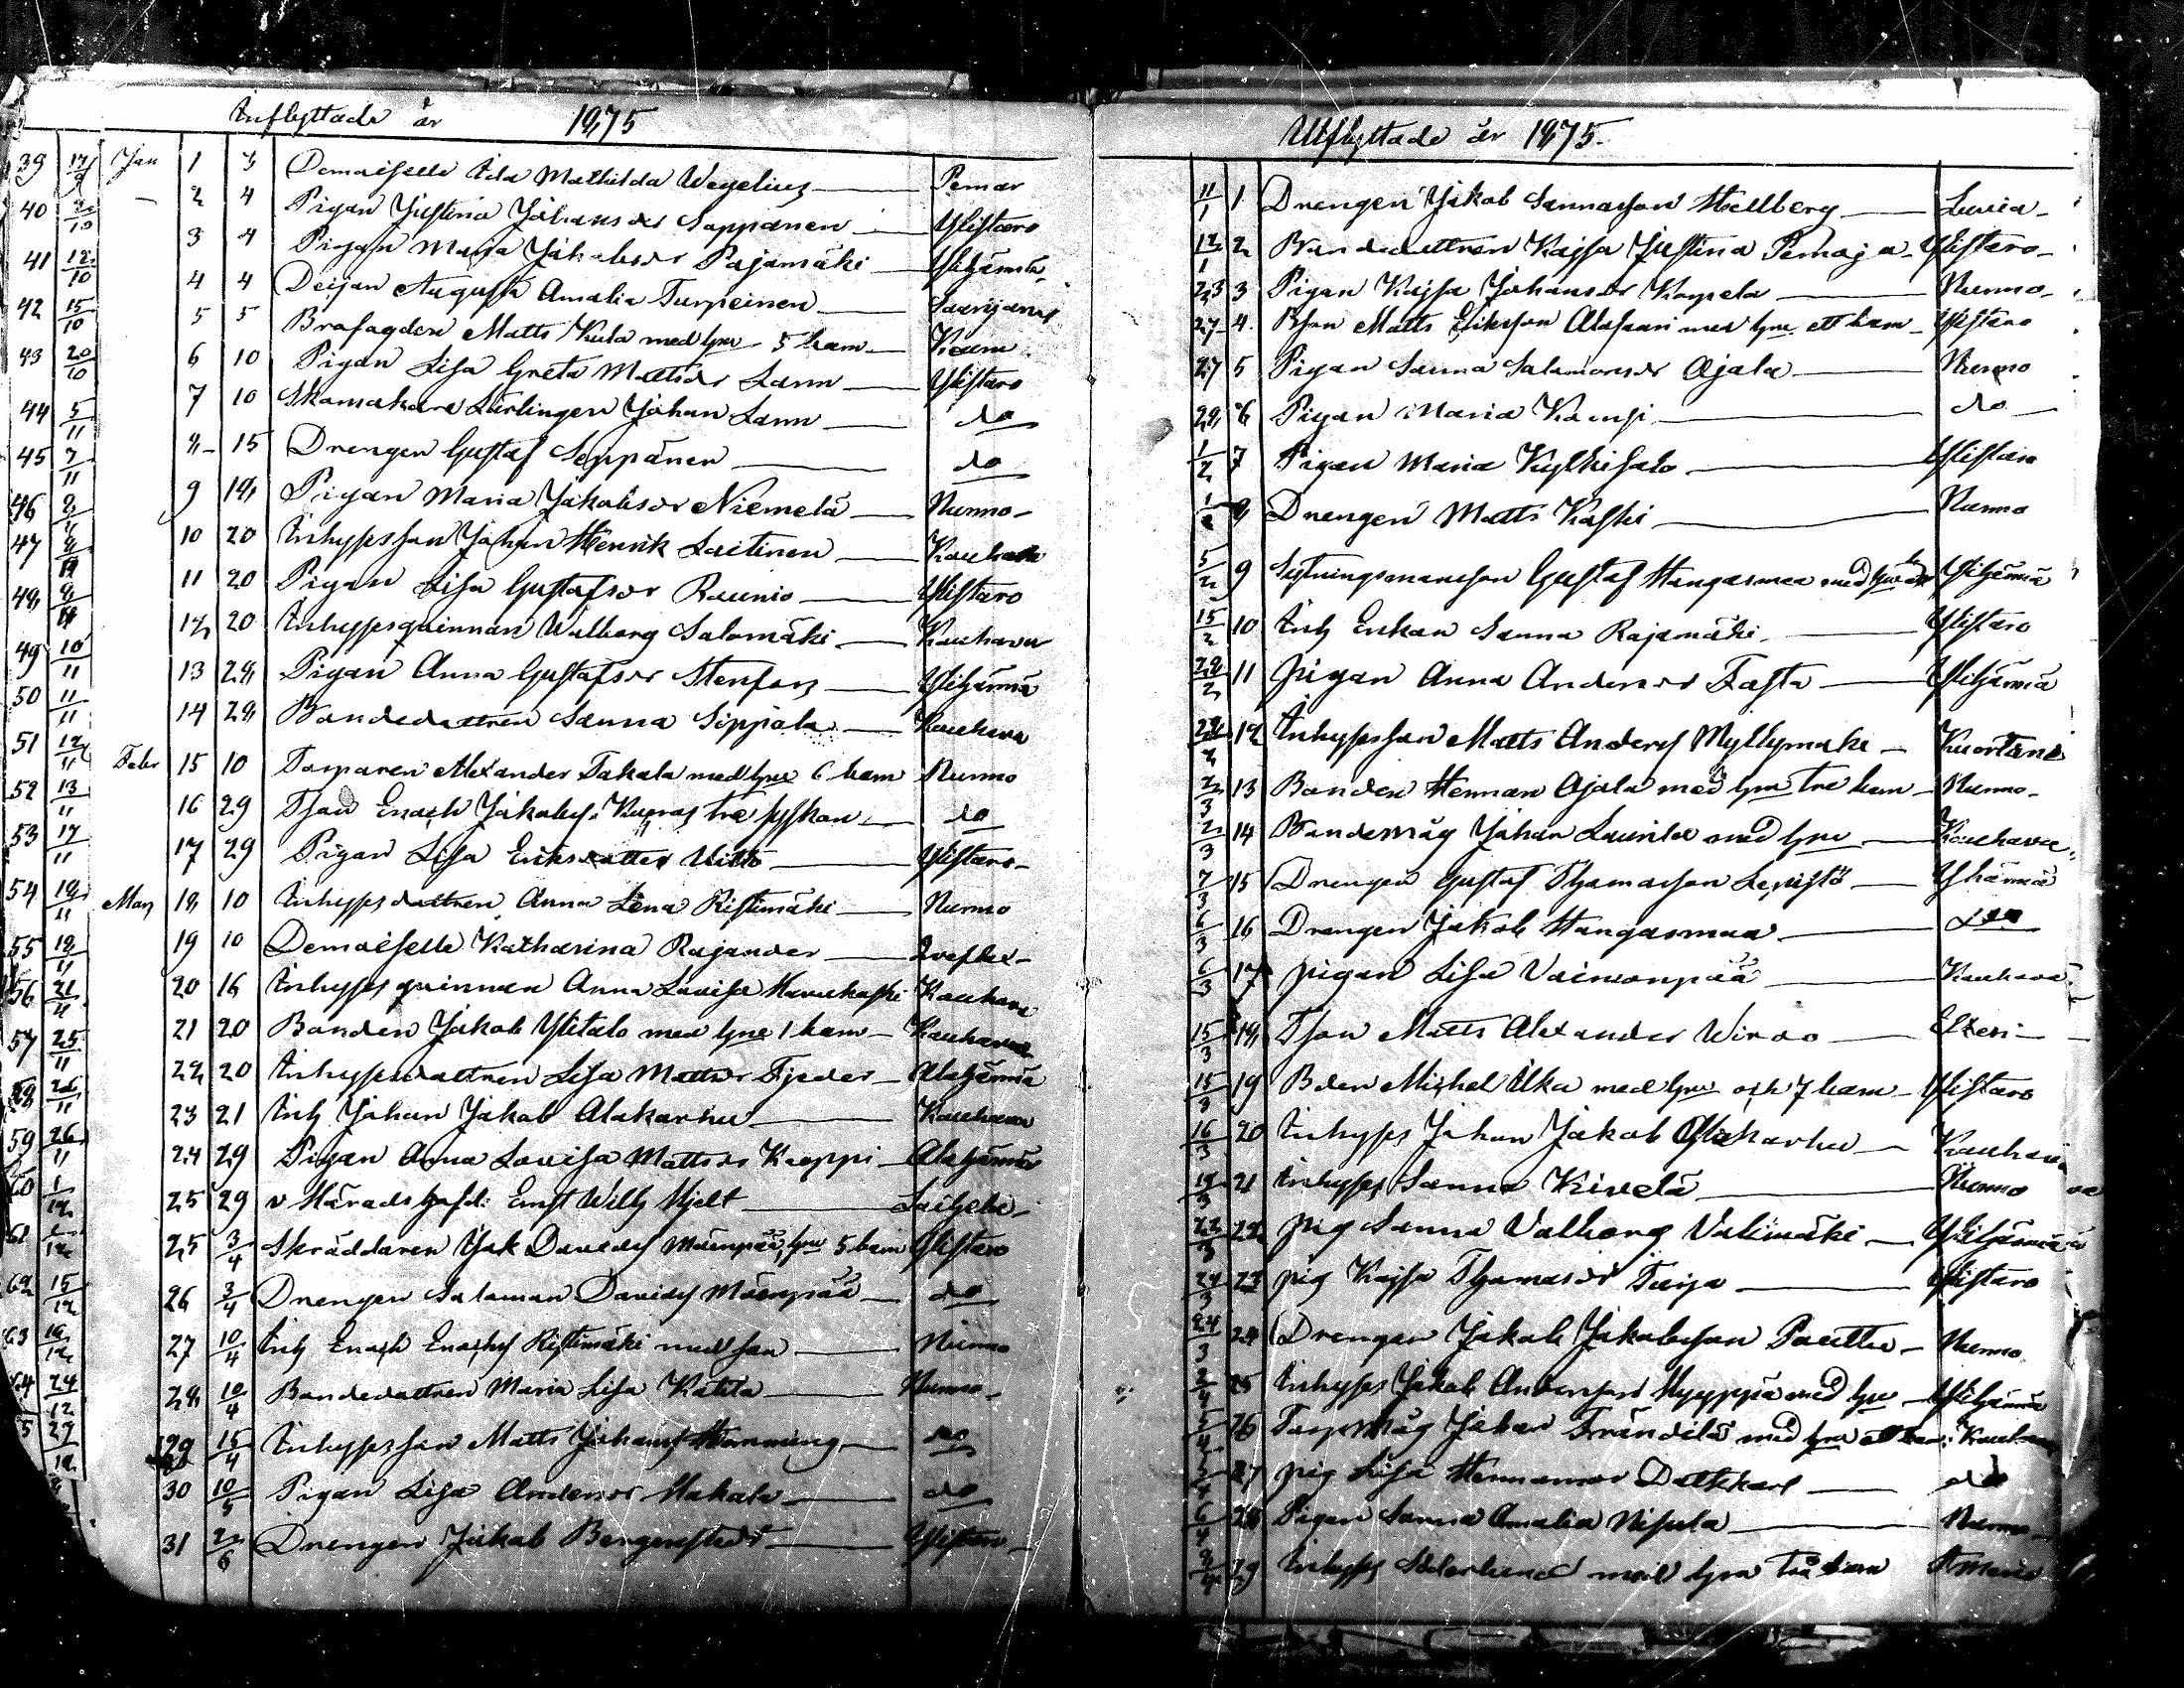 Inflyttade år 1875
39 17/9 Jan 1 3 Demoiselle Ida Mathilda Wegelius Pemar
40 2/10 - 2 4 Pigan Justina Johansdr Seppänen Ylistaro
41 12/10 3 4 Pigan Maria Jakobsdr Pajamäki Ylihärmä
42 15/10 4 4 Deijan Augusta Amalia Turpeinen Saarijärvi
43 20/10 5 5 Matts Kula med hru 5 barn
44 5/11 6 10 Pigan Lisa Greta Mattsdr Lann Ylistaro
45 7/11 7 10 Skomakare Lärlingen Johan Lann do
46 8 15 Drengen Gustaf Seppänen do
47 9 18 Pigan Maria Jakobsdr Niemelä Nurmo
48 10 20 Inhyssson Johan Henrik Laitinen Kauhava
49 10/11 11 20 Pigan Lisa Gustafsdr Raunio Ylistaro
50 11/11 12 20 Inhyssqvinnan Walborg Salomäki Kauhava
51 12/11 13 28 Pigan Anna Gustafsdr Stenfors Ylihärmä
52 13/11 14 28 Bondedottren Sanna Sippola Kauhava
53 17/11 Febr 15 10 Torparen Alexander Takala med hru 6 barn Nurmo
54 18/11 16 29 Tson Enoch Jakobss. Kupras tre syskon do
55 18/11 17 29 Pigan Lisa Eriksdotter Uitto Ylistaro
56 21/11 Mars 18 10 Inhyssdottren Anna Lena Ristimäki Nurmo
57 25/11 19 10 Demoiselle Katharina Rajander
58 26/11 20 16 Inhyssqvinnan Anna Lovisa Kauhava
59 26/11 21 20 Bonden Jakob Ylitalo med hru 1 barn Kauhava
60 1/12 22 20 Inhyssdottren Lisa Mattsdr Fjeder Alahärmä
61 23 21 Inh Johan Jakob Alakarhu Kauhava
62 15/12 24 29 Pigan Anna Lovisa Mattsdr Kroppi Alahärmä
63 25 29 v Häradshöfd: Ernst Wilh Hjelt Laihela
64 24/12 25 3/4 Skräddaren Jak Davidss Mäenpää hru 5 barn Ylistaro
5 27/12 26 3/4 Drengen Salomon Davidss Mäenpää do
27 10/4 Inh Enoch Enochss Ristimäki med son Nurmo
28 10/4 Bondedottren Maria Lisa Nurmo
29 15/4 Inhyssson Matts Johanss Hemming do
30 10/5 Pigan Lisa Andersdr Makala do
31 2/6 Drengen Jakob Bergenstedt Ylistaro
Utflyttade år 1875.
11/1 1 Drengen Jakob Sannasson Hellberg Luvia
12/1 2 Bondedottren Kajsa Justina Pemaja Ylistaro
23 3 Pigan Kajsa Johansdr Karpela Nurmo
27 4 Bson Matts Eriksson Alasaari med hru ett barn Ylistaro
27 5 Pigan Sanna Salamonsdr Ojala Nurmo
28 6 Pigan Maria do
1/2 7 Pigan Maria Kylkisalo Ylistaro
1/2 8 Drengen Matts Koski Nurmo
5/2 9 Sytningsmansson Gustaf Hangasmaa med hru Ylihärmä
15/2 10 Inh Enkan Sanna Rajamäki Ylistaro
22/2 11 Pigan Anna Andersdr Fasta Ylihärmä
2 12 Inhyssson Matts Anderss Myllymäki Kuortane
2/3 13 Bonden Herman Ojala med hru tre barn Nurmo
2/3 14 Bondemåg Johan Laurila med hru Kauhava
7/3 15 Drengen Gustaf Thomasson Lepistö Yhärmä
6/3 16 Drengen Jakob Hangasmaa do
6/3 17 Pigan Lisa Vaimonpää Kauhava
15/3 18 Tson Matts Alexander Wirdo Etseri
15/3 19 Bden Michel Ilka med hru och 7 barn Ylistaro
16/3 20 Inhyss Johan Jakob Alakarhu Kauhava
18/3 21 Inhyss Sanna Kivelä Nurmo
22/3 22 pig Sanna Valborg Välimäki Ylihärmä
24/3 23 pig Kajsa Thomasdr Ylistaro
24/3 24 Drengen Jakob Jakobsson Nurmo
2/4 25 Inhyss Jakob Andersson Hyyppä med hru Ylihärmä
5/4 26 Torpmåg Johan Frändilä med hru ett barn Kauhava
27 pig Lisa Hermansdr Dalkkarl do
6/4 28 Pigan Sanna Amalia Nisula Nurmo
8/4 29 Inhyss Söderlund med hru två barn